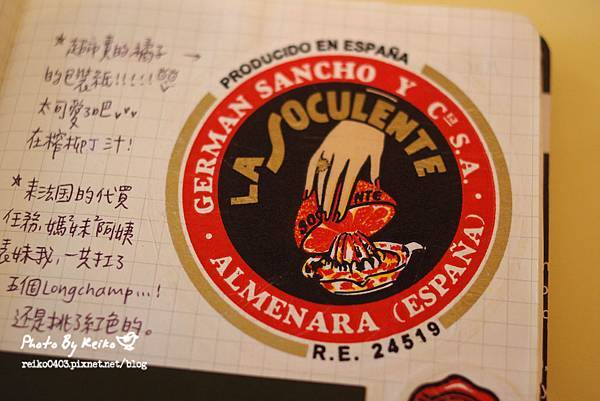 *超市賣的橘子 →
的包裝紙!!!!!
太可愛了吧
在榨柳丁汁!
*來法国的代買
任務,媽妹阿姨
表妹我,一共扛了
五個Longchamp...!
還是挑了紅色的。
PRODUCIDO EN ESPAÑA
GERMAN SANCHO Y Cª S.A.
LA SOCULENTE
SO NTE
ALMENARA (ESPAÑA)
R.E. 24519
Photo By Reiko
reiko0403.pixnet.net/blog